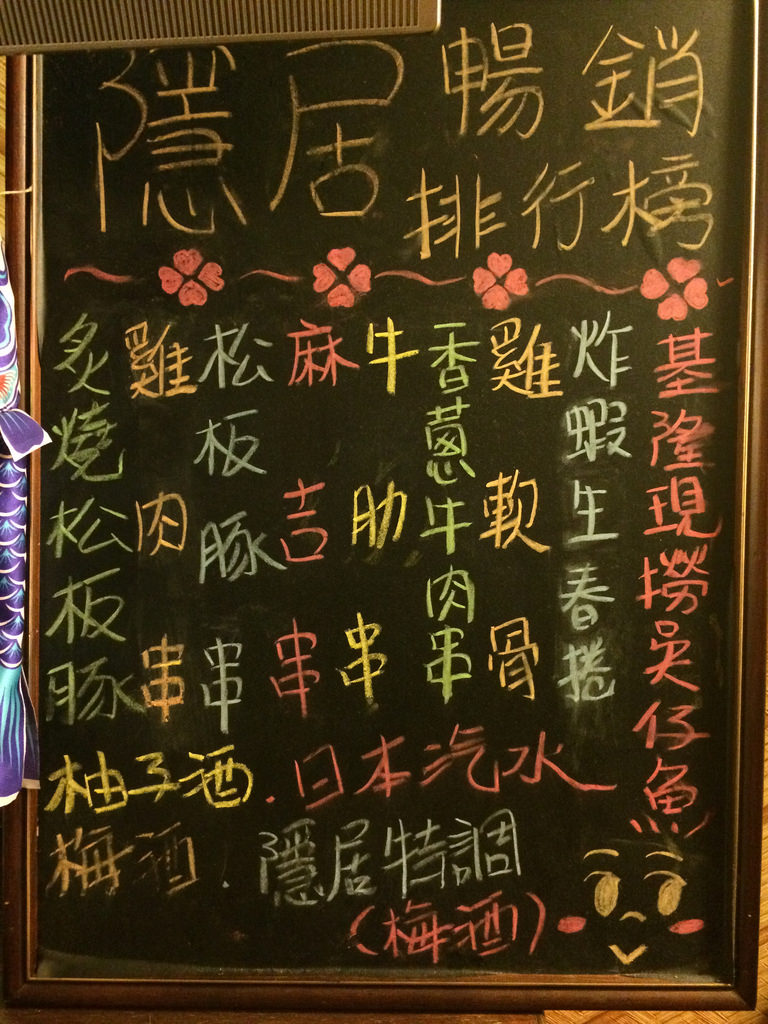 隱居暢銷
排行榜
基隆現撈吳仔魚
炸蝦生春捲
雞軟骨
香蔥牛肉串
牛肋串
麻吉串
松板豚串
雞肉串
炙燒松板豚
柚子酒.日本汽水
梅酒.隱居特調
(梅酒)